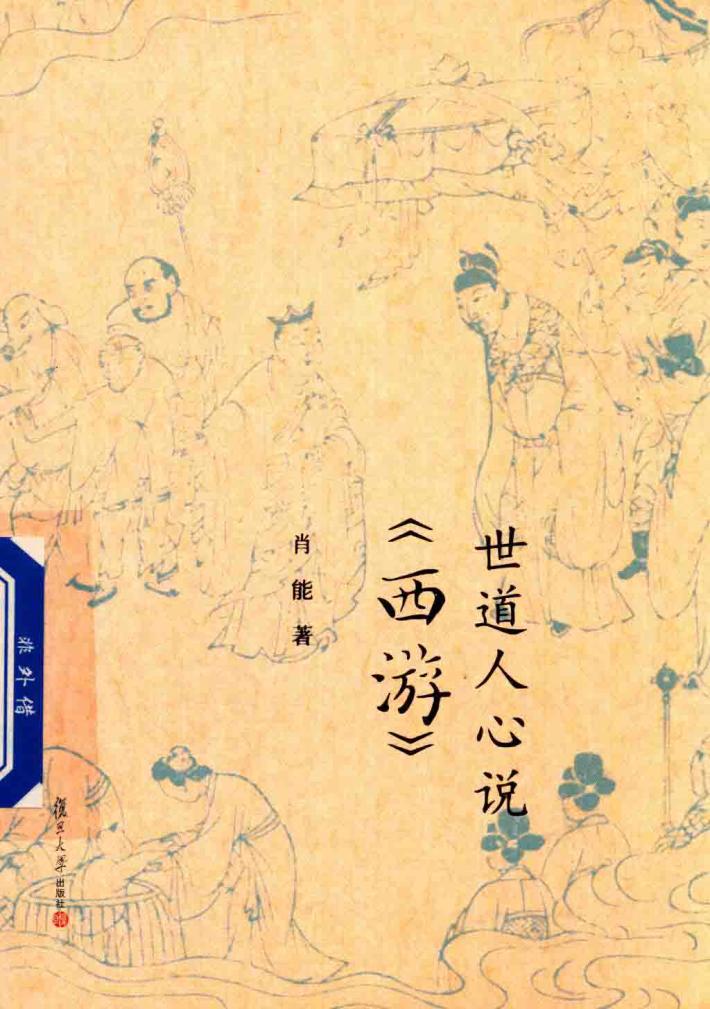 世道人心说
《西游》
肖能著
非外借
复旦大学出版社